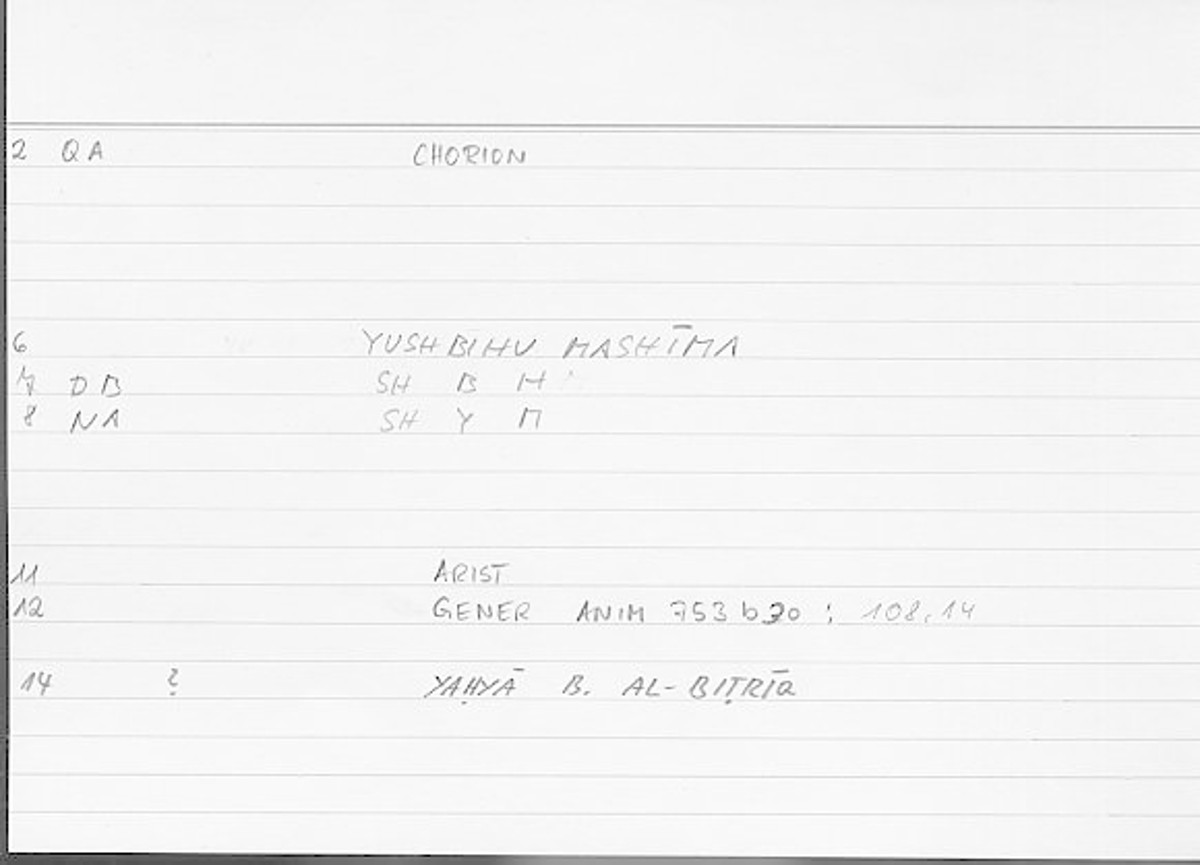 2 QA CHORION
6 YUSHBIHU MASHĪMA
7 DB SH B H
8 NA SH Y M
11 ARIST
12 GENER ANIM 753 b30 : 108,14
14 ? YAḤYĀ B. AL-BIṬRĪQ